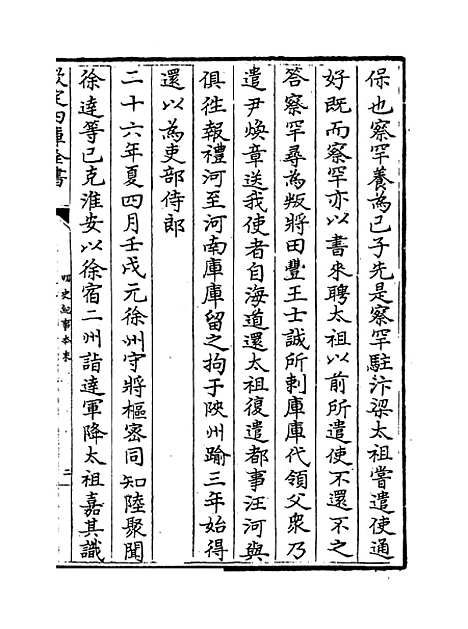 保也察罕養為己子先是察罕駐汴梁太祖嘗遣使通
好既而察罕亦以書來聘太祖以前所遣使不還不之
答察罕尋為叛將田豐王士誠所刺庫庫代領父衆乃
遣尹煥章送我使者自海道還太祖復遣都事汪河與
俱徃報禮河至河南庫庫留之拘于陜州踰三年始得
還以為吏部侍郎
二十六年夏四月壬戌元徐州守將樞密同知陸聚聞
徐達等已克淮安以徐宿二州詣達軍降太祖嘉其識
欽定四庫全書
明史紀事本末
二